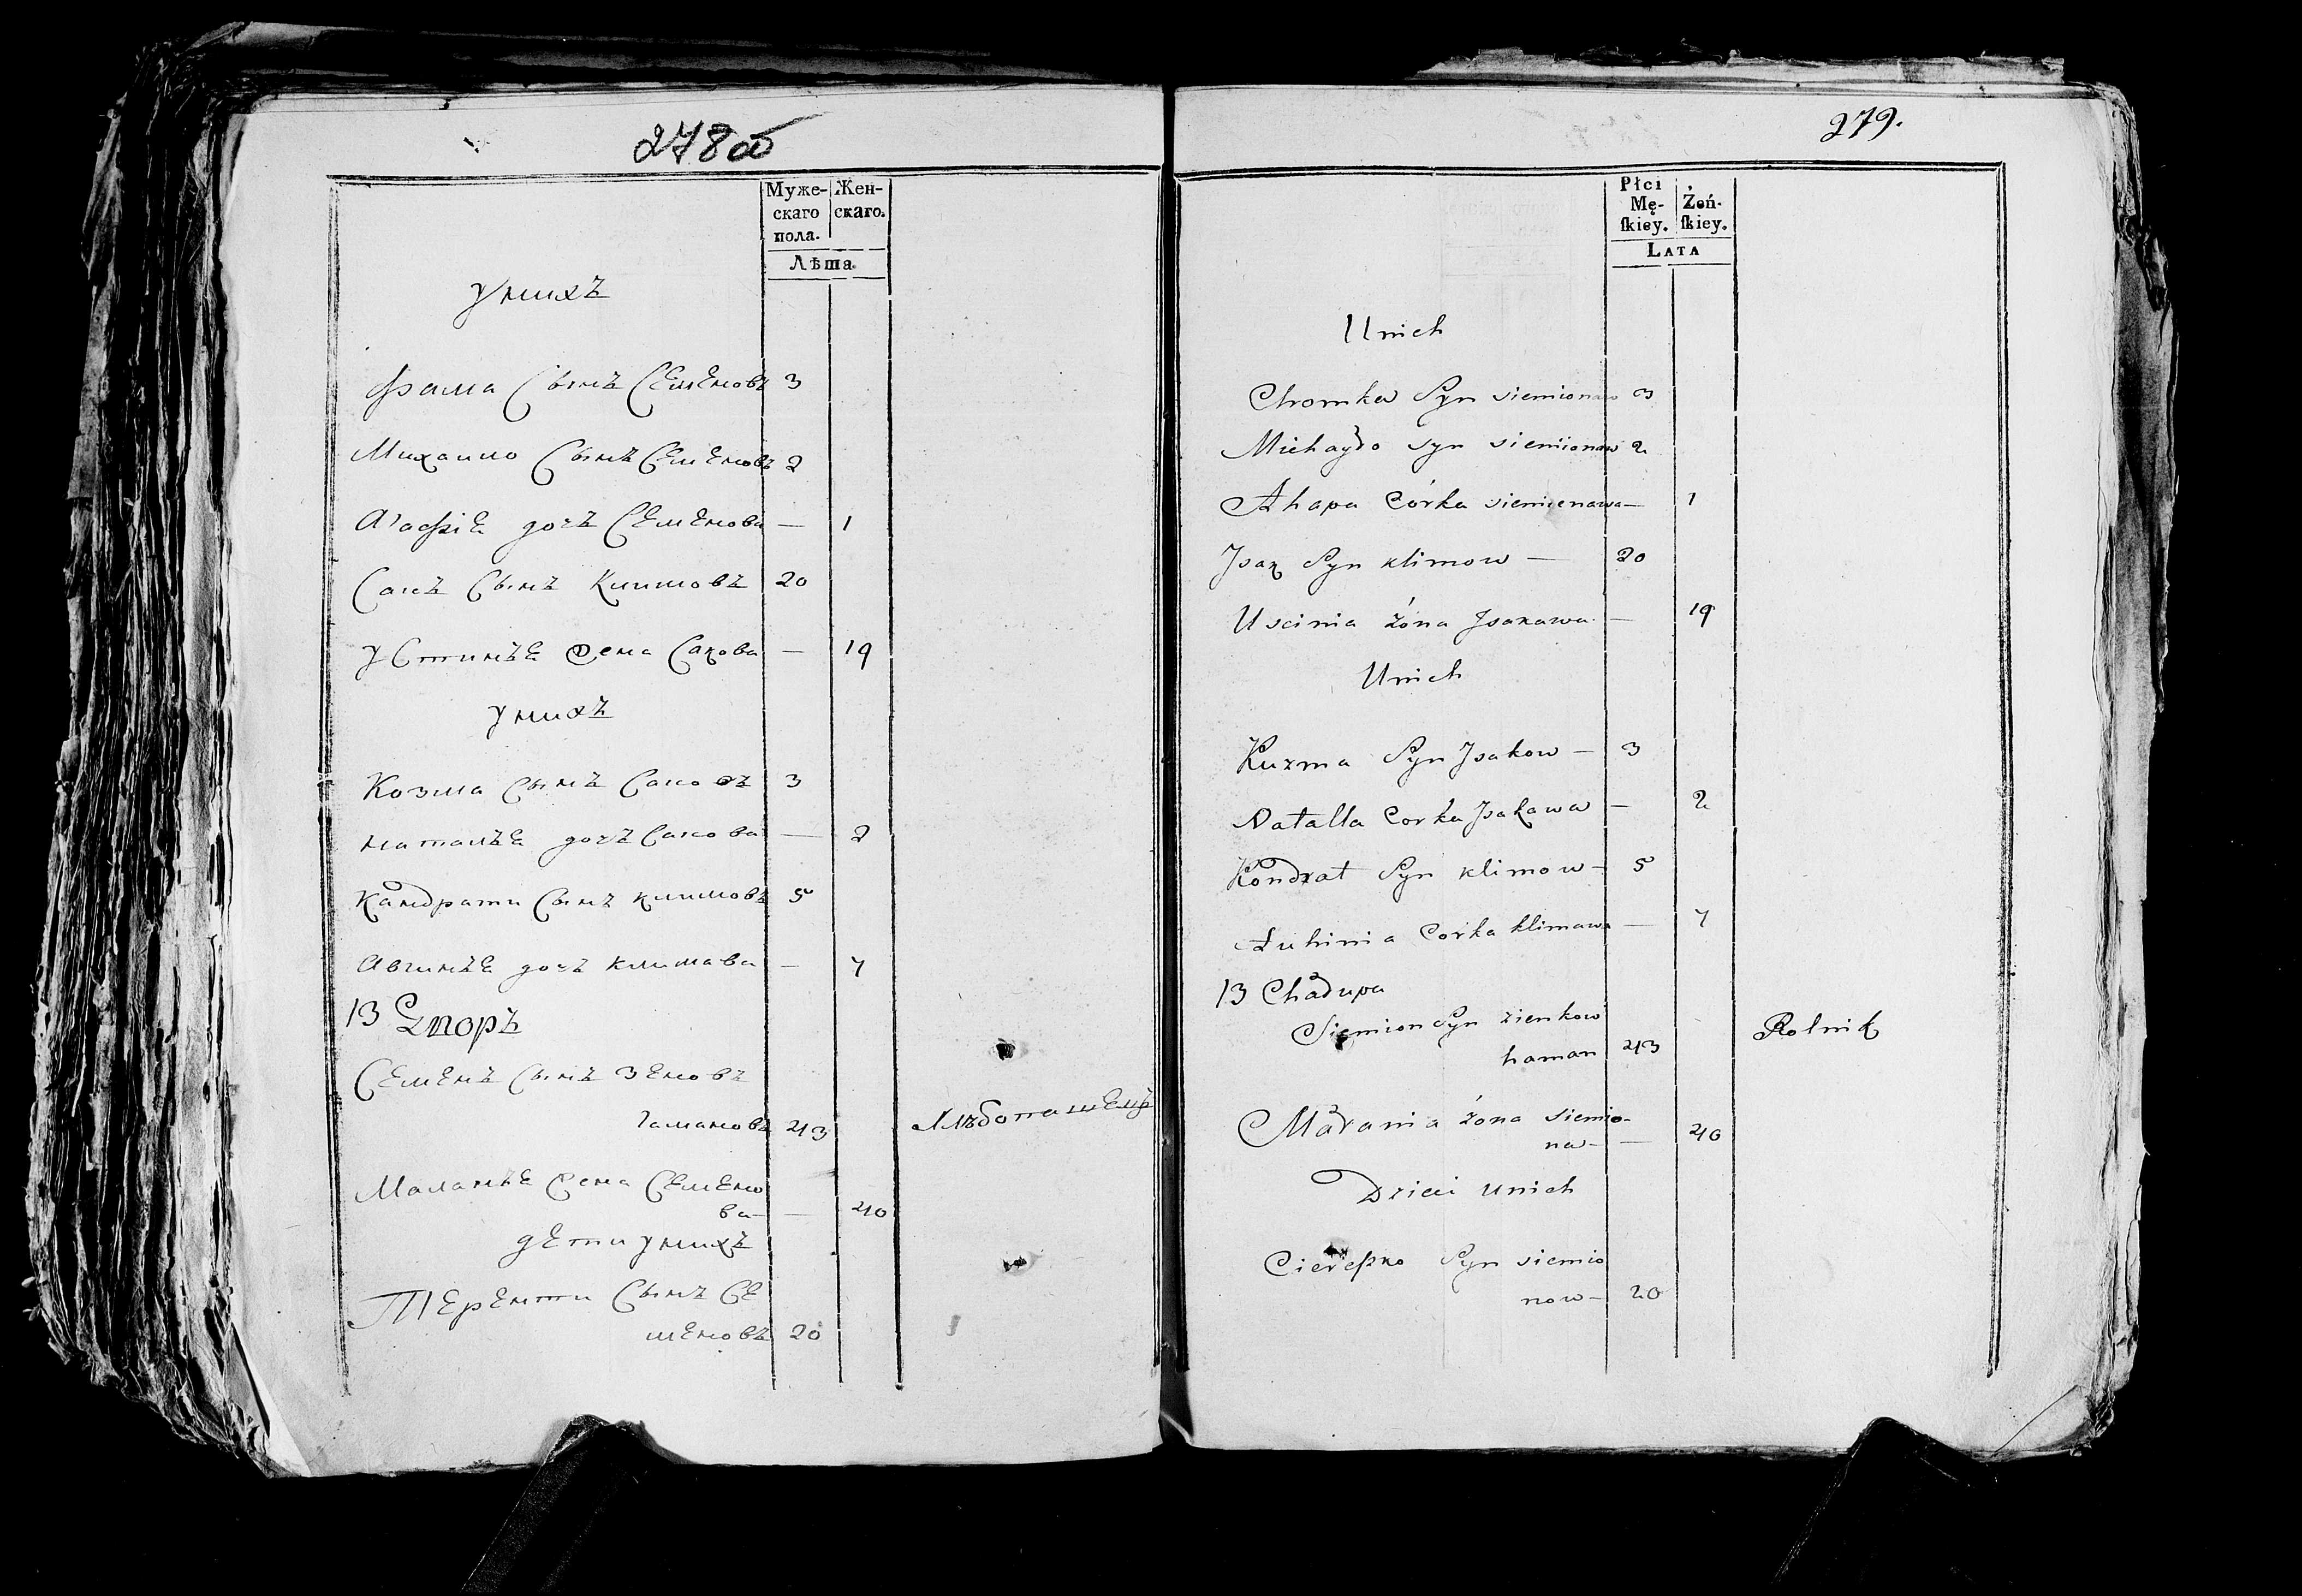 278об
Муже- Жен-
скаго скаго.
пола.
Лѣта.
у нихъ
Фама Сынъ Семеновъ 3
Михаило Сынъ Семеновъ 2
Агафіа дочъ Семенова — 1
Сакъ Сынъ Климовъ 20
устинъа жена Сакова — 19
у нихъ
Козма Сынъ Саковъ 3
наталъа дочъ Сакова — 2
кандрати Сынъ климовъ 5
Авгинъа дочъ климава — 7
13 Двор
Семенъ Сынъ Зеновъ
гамановъ 43 хлѣбопашецъ
Маланъа жена Семено
ва — — 40
дети у нихъ
Теренти Сынъ Се
меновъ 20
279.
Płci
Mę- Żeń-
ſkiey. ſkiey.
LATA
Unich
Chomka Syn siemionaw 3
Michayło syn siemionaw 2
Ahapa Córka siemienawa — 1
Jsak Syn klimow — 20
Uscinia żóna Jsakawa — 19
Unich
Kuzma Syn Jsakow — 3
Natalla Corka Jsakawa — 2
Kondrat Syn klimow — 5
Łuhinia Corka klimawa — 7
13 Chałupa
Siemion Syn zienkow
haman 43 Rolnik
Małania żona siemio-
na — — 40
Dzieci unich
Ciereszko Syn siemio
now — 20